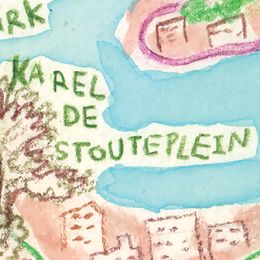 ARK
KAREL
DE
STOUTEPLEIN